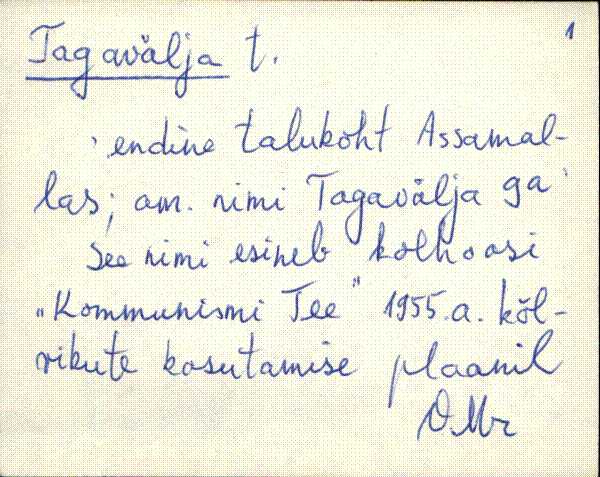 1
Tagavälja t.
endine talukoht Assamal-
las; am. nimi Tagavälja ga
See nimi esineb kolhoosi
„Kommunismi Tee" 1955.a. kõl-
vikute kasutamise plaanil